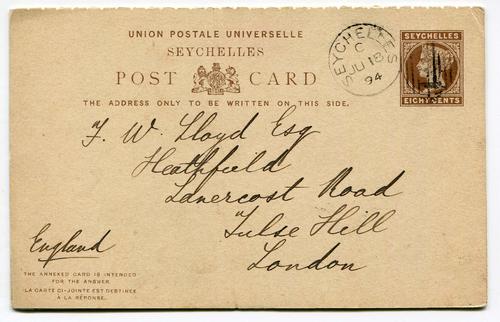 UNION POSTALE UNIVERSELLE
SEYCHELLES
POST CARD
THE ADDRESS ONLY TO BE WRITTEN ON THIS SIDE.
SEYCHELLES
C
JU 18
94
SEYCHELLES
EIGHT CENTS
F. W. Lloyd Esq
Heathfield
Lanercost Road
Tulse Hill
London
England
THE ANNEXED CARD IS INTENDED
FOR THE ANSWER.
LA CARTE CI-JOINTE EST DESTINÉE
À LA RÉPONSE.